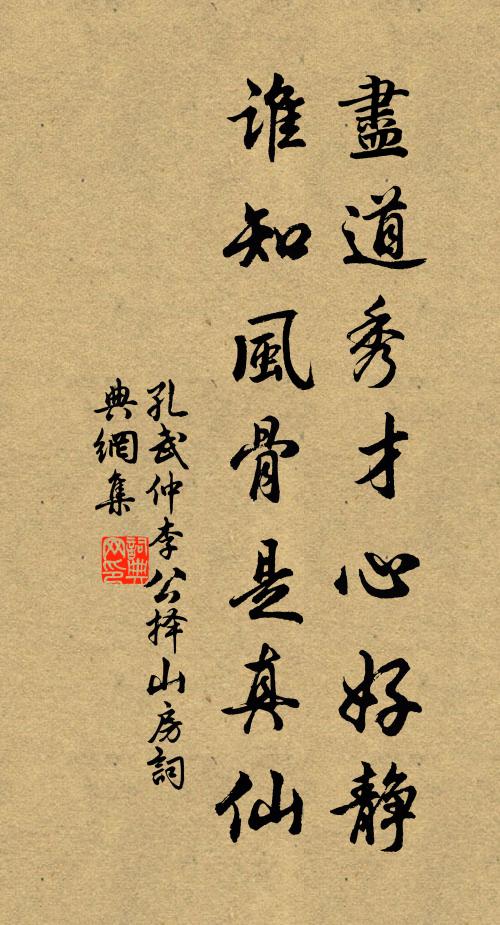 盡道秀才心好静
谁知風骨是真仙
孔武仲李公择山房詞
典網集
詞典
网印